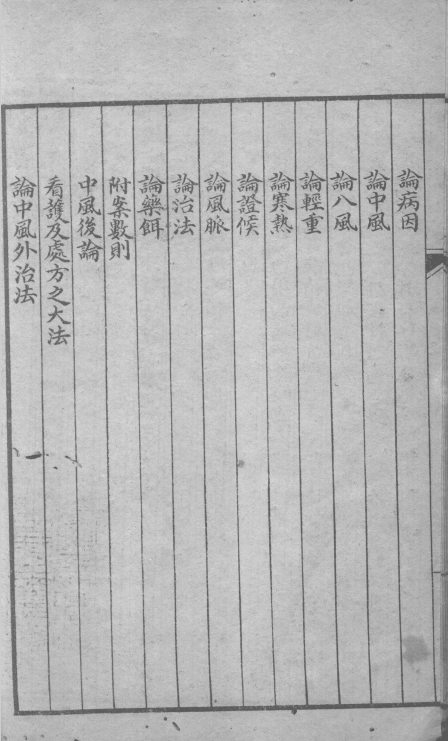 論病因
論中風
論八風
論輕重
論寒熱
論證候
論風脈
論治法
論藥餌
附案數則
中風後論
看護及處方之大法
論中風外治法